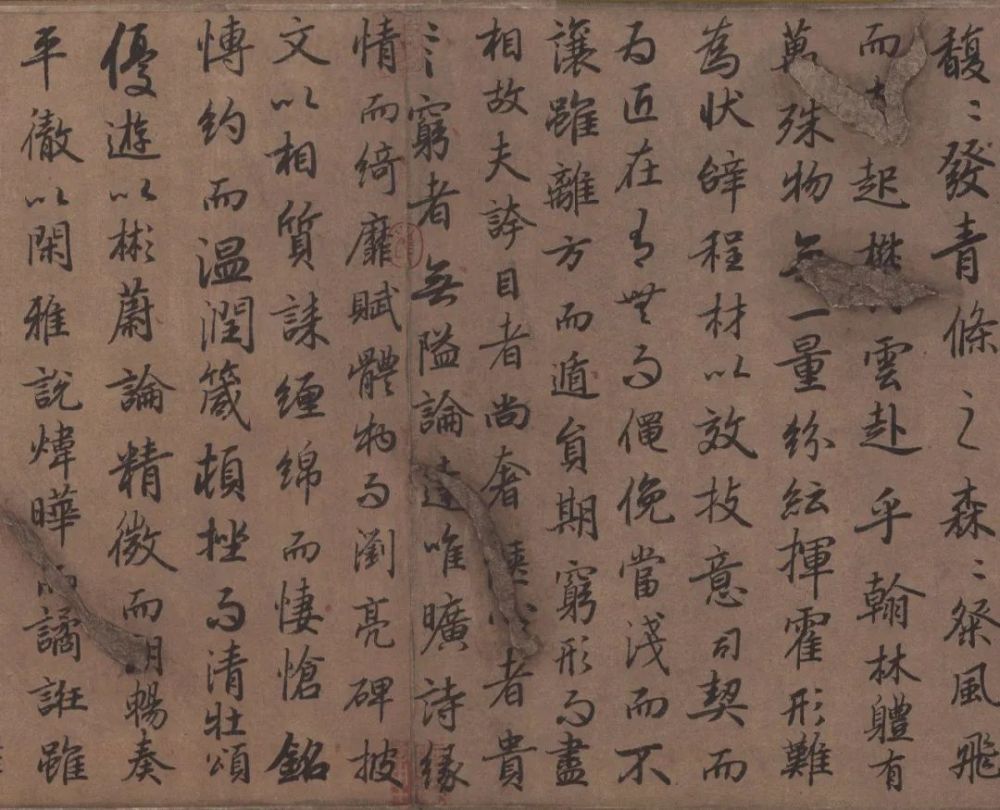 馥〻發青條之森〻粲風飛
而起欝雲赴乎翰林軆有
萬殊物无一量紛紜揮霍形難
為狀辝程材以效技意司契而
為匠在有無而僶俛當淺而不
讓雖離方而遁員期窮形而盡
相故夫誇目者尚奢者貴
〻窮者無隘論達唯曠詩緣
情而綺靡賦體物而瀏亮碑披
文以相質誄纏綿而悽愴銘
博約而温潤箴頓挫而清壯頌
優遊以彬蔚論精微而朗暢奏
平徹以閑雅說煒曄而譎誑雖